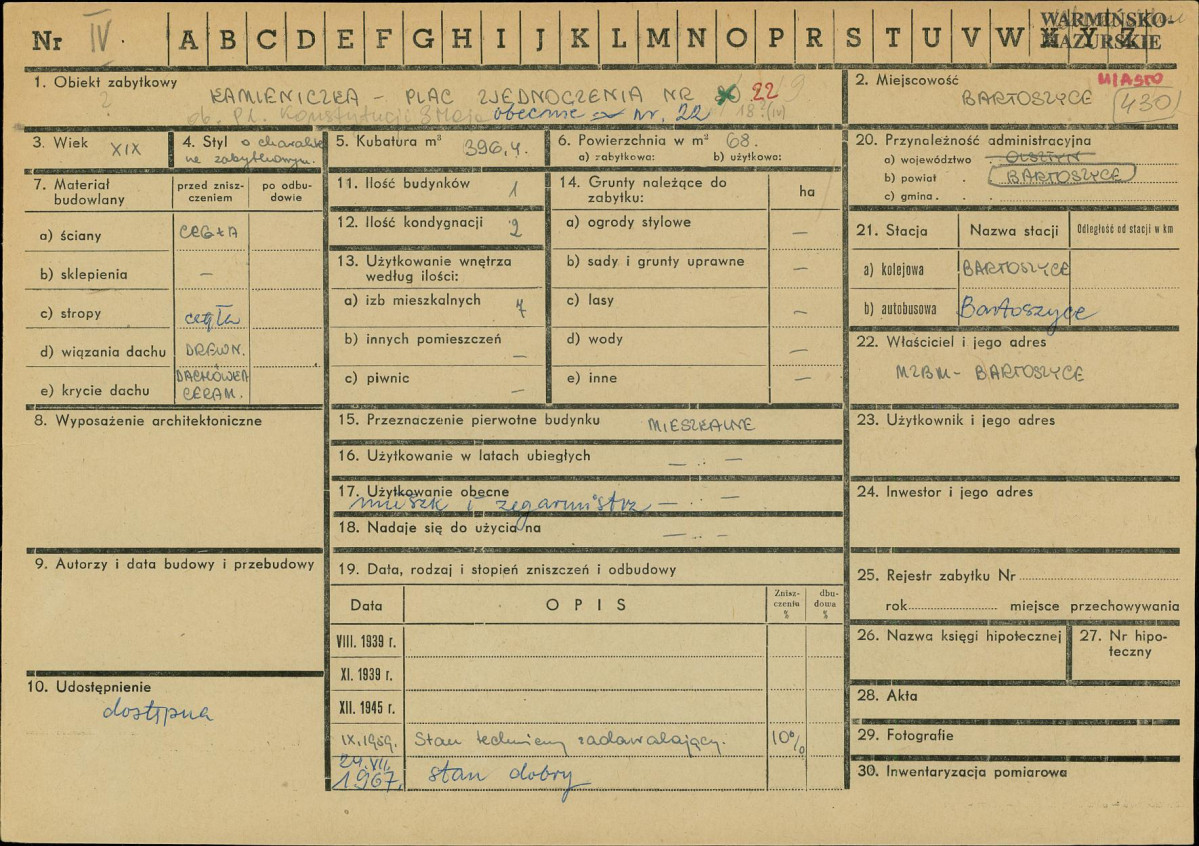 Nr IV A B C D E F G H I J K L M N O P R S T U V W X Y Z
WARMIŃSKO-
MAZURSKIE
1. Obiekt zabytkowy
KAMIENICZKA - PLAC ZJEDNOCZENIA NR 22
ob. Pl. Konstytucji 3 Maja obecnie nr. 22
18 (IV)
2. Miejscowość
MIASTO
BARTOSZYCE
430
3. Wiek XIX
4. Styl o charakte
rze zabytkowym.
5. Kubatura m³ 396,4.
6. Powierzchnia w m² 68.
a) zabytkowa: b) użytkowa:
7. Materiał budowlany
przed znisz-
czeniem
po odbu-
dowie
a) ściany CEGŁA
b) sklepienia —
c) stropy cegła
d) wiązania dachu DREWN.
e) krycie dachu DACHÓWKA
CERAM.
8. Wyposażenie architektoniczne
9. Autorzy i data budowy i przebudowy
10. Udostępnienie
dostępna
11. Ilość budynków 1
12. Ilość kondygnacji 2
13. Użytkowanie wnętrza
według ilości:
a) izb mieszkalnych 7
b) innych pomieszczeń —
c) piwnic —
14. Grunty należące do
zabytku:
ha
a) ogrody stylowe —
b) sady i grunty uprawne —
c) lasy —
d) wody —
e) inne —
15. Przeznaczenie pierwotne budynku MIESZKALNE
16. Użytkowanie w latach ubiegłych — .. —
17. Użytkowanie obecne
mieszk i zegarmistrz — .. —
18. Nadaje się do użycia na — .. —
19. Data, rodzaj i stopień zniszczeń i odbudowy
Data OPIS
Znisz-
czenia
%
dbu-
dowa
%
VIII. 1939 r.
XI. 1939 r.
XII. 1945 r.
IX.1959. Stan techniczny zadawalający. 10%
24.VII.
1967. stan dobry
20. Przynależność administracyjna
a) województwo OLSZTYN
b) powiat . BARTOSZYCE
c) gmina . . .
21. Stacja Nazwa stacji Odległość od stacji w km
a) kolejowa BARTOSZYCE
b) autobusowa Bartoszyce
22. Właściciel i jego adres
MZBM - BARTOSZYCE
23. Użytkownik i jego adres
24. Inwestor i jego adres
25. Rejestr zabytku Nr
rok miejsce przechowywania
26. Nazwa księgi hipotecznej
27. Nr hipo-
teczny
28. Akta
29. Fotografie
30. Inwentaryzacja pomiarowa